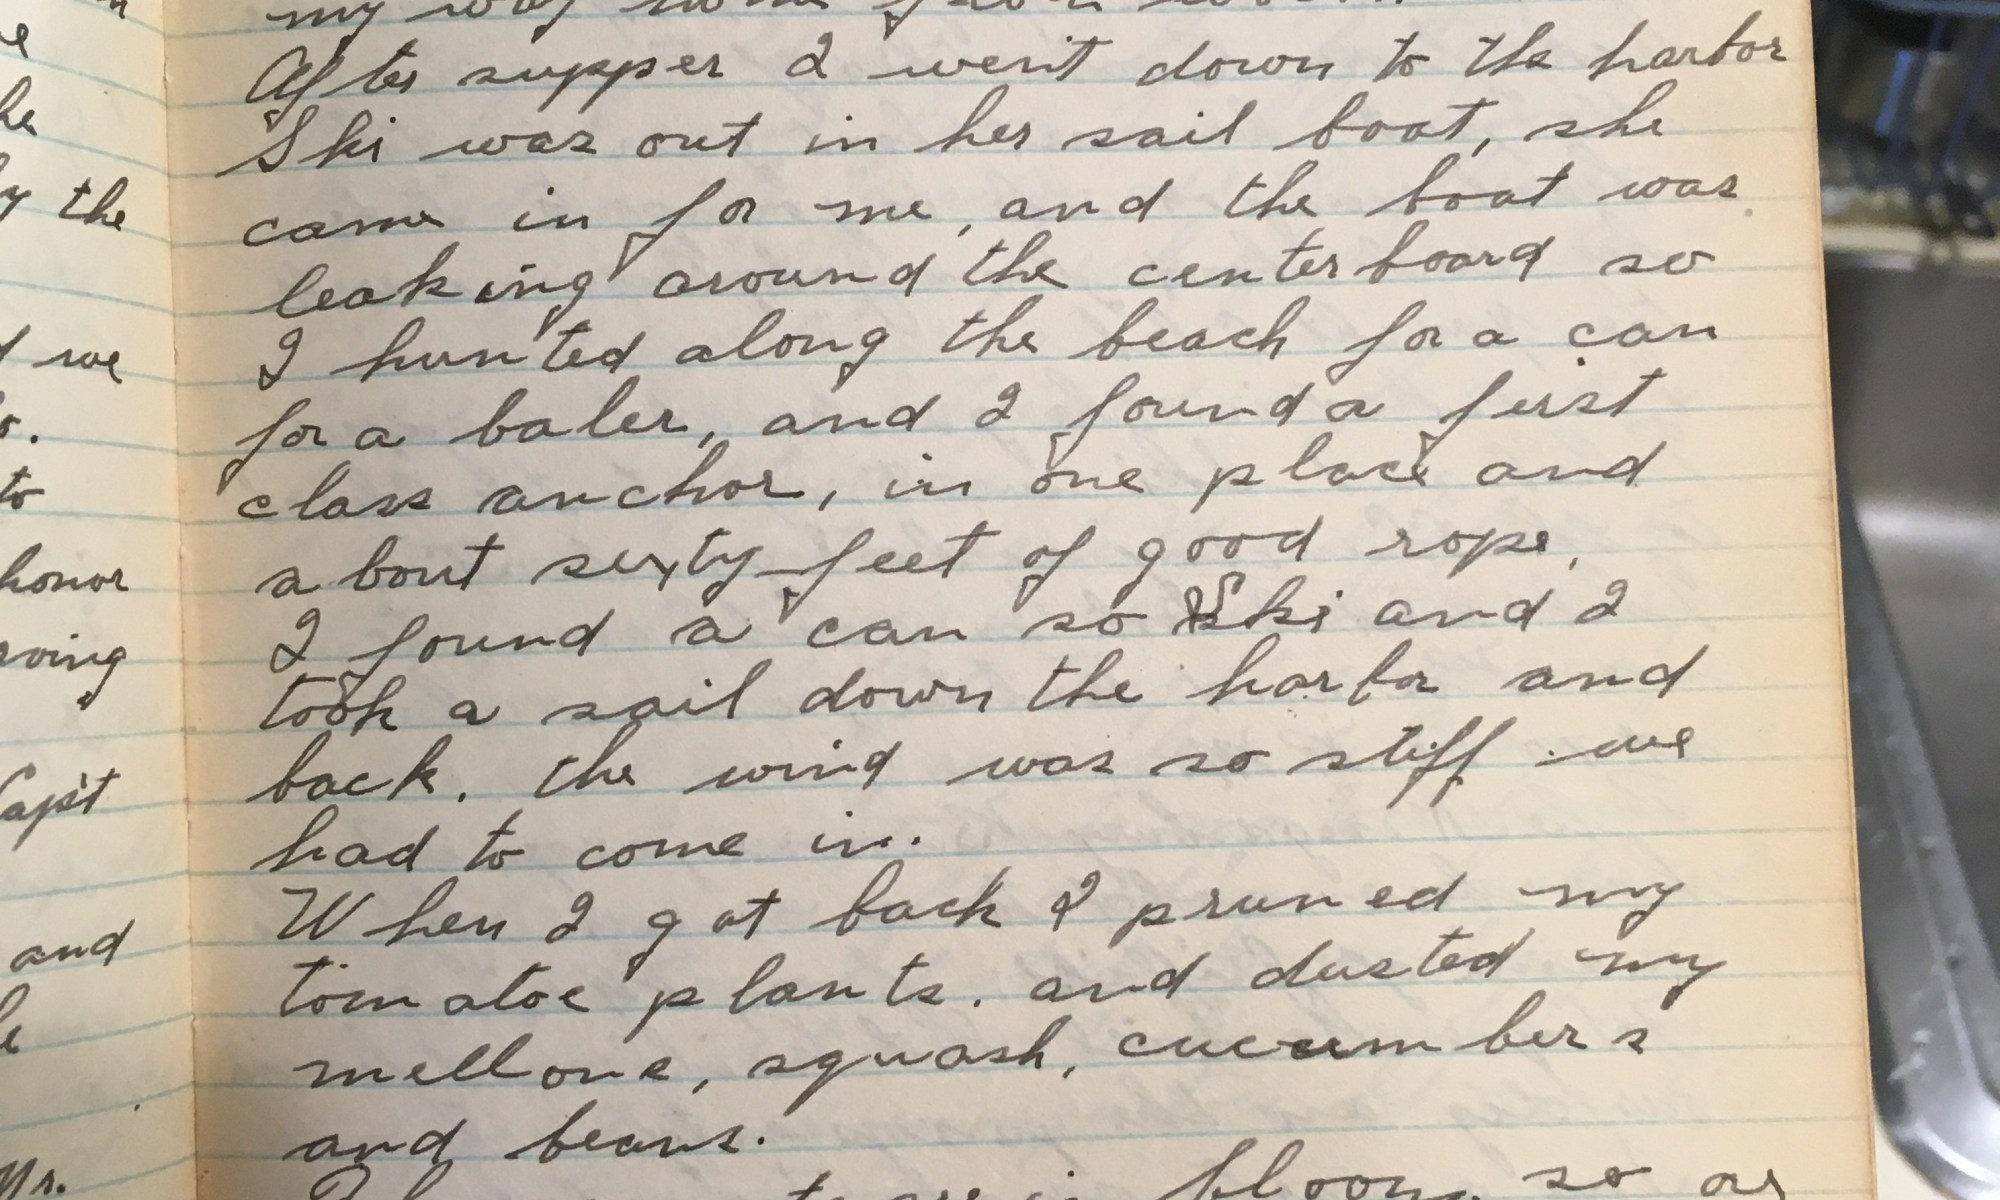 my way home from work.
After supper I went down to the harbor
Ski was out in her sail boat, she
came in for me, and the boat was
leaking around the centerboard so
I hunted along the beach for a can
for a baler, and I found a first
class anchor, in one place and
about sixty feet of good rope,
I found a can so Ski and I
took a sail down the harbor and
back. the wind was so stiff we
had to come in.
When I got back I pruned my
tomatoe plants. and dusted my
mellons, squash, cucumbers
and beans.
bloom, so as
he
y the
we
to
honor
Cap't
and
Mr.